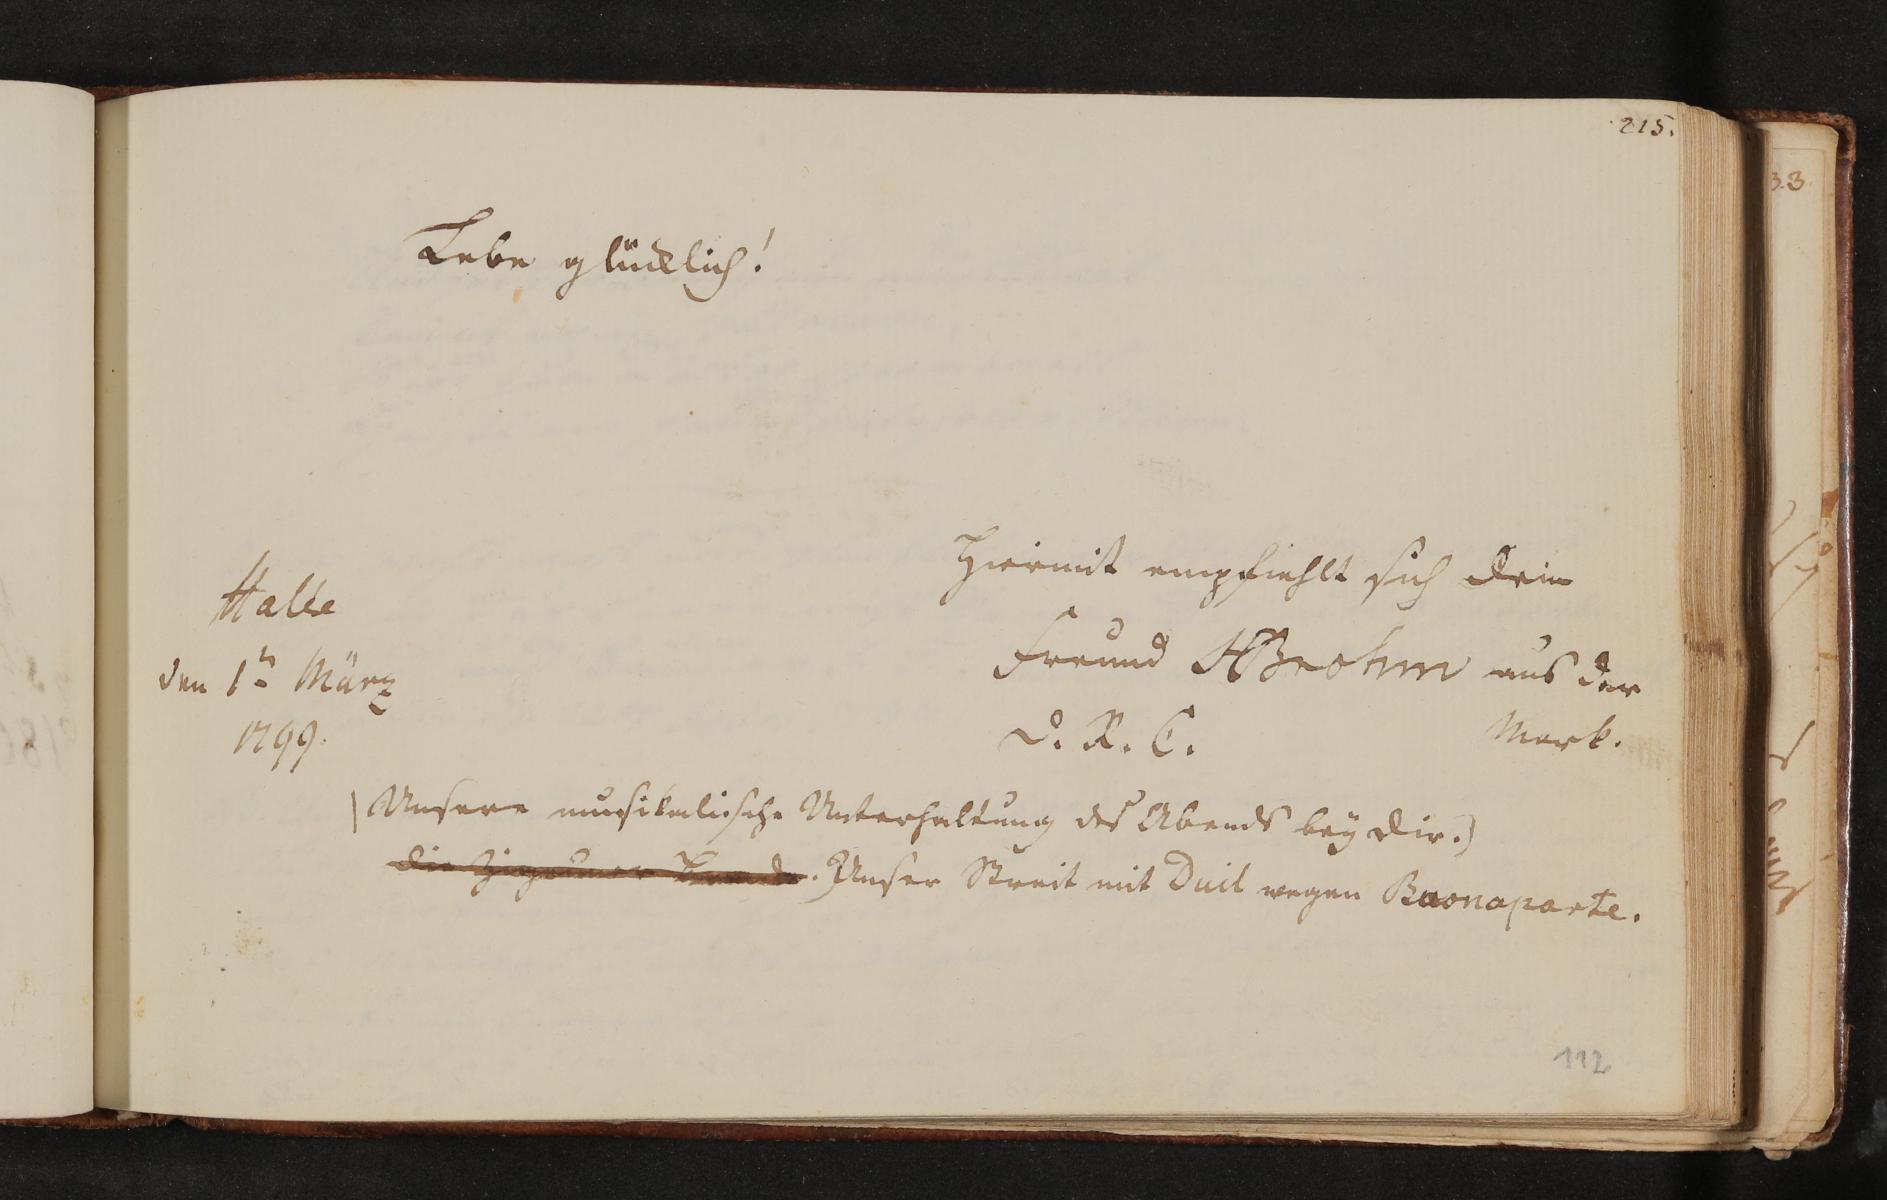 215.
Lebe glücklich!
Hiermit empfiehlt sich Dein
Freund HBrohm aus der
Mark.
Halle
den 1tn März
1799.
D. R. C.
(Unsere musikalische Unterhaltung des Abends bey Dir.)
Die Zigeuner Bande. Unser Streit mit Duil wegen Buonaparte.
112
33